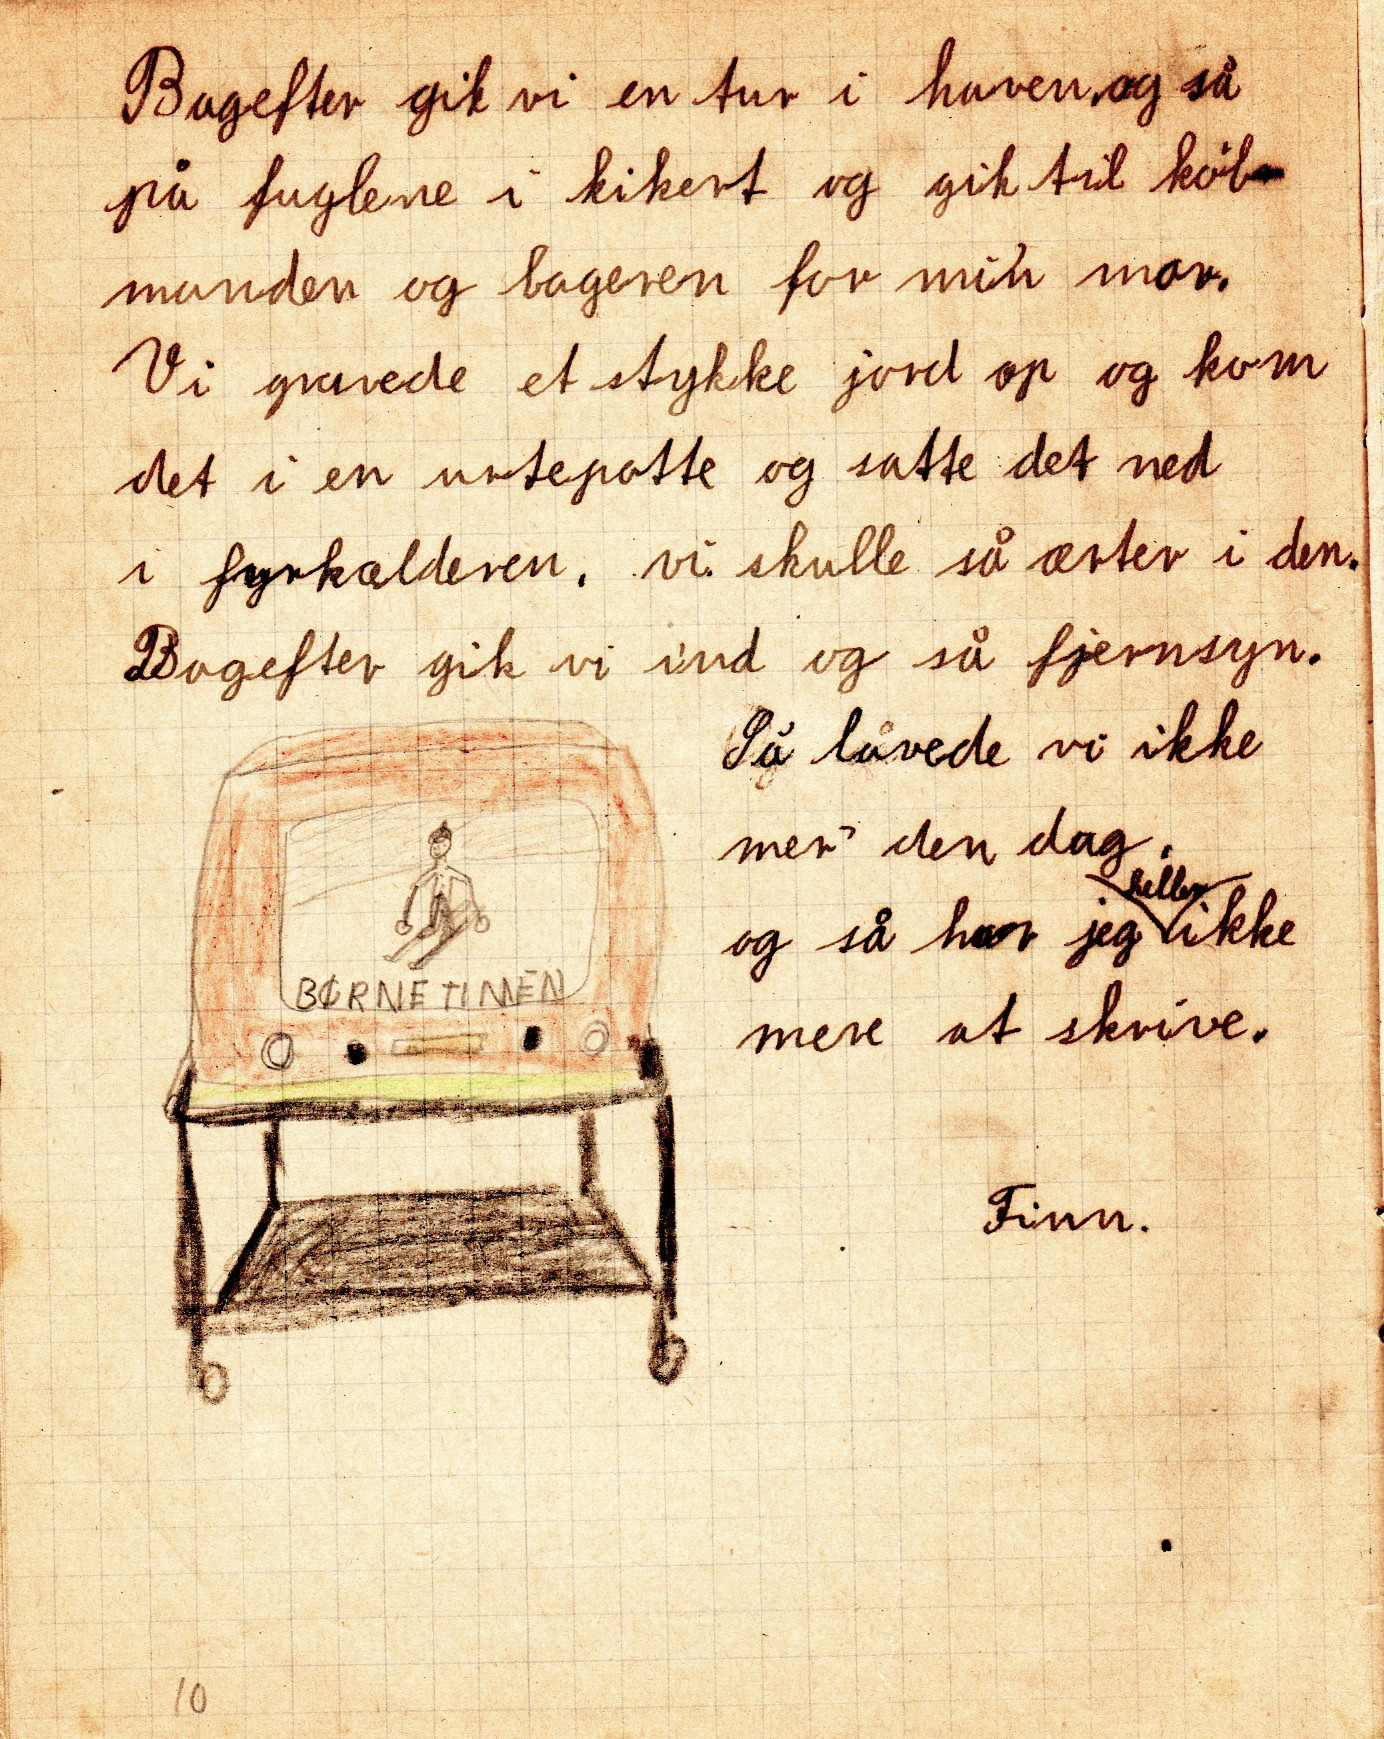 Bagefter gik vi en tur i haven, og så
på fuglene i kikert og gik til køb-
manden og bageren for min mor.
Vi gravede et stykke jord op og kom
det i en urtepotte og satte det ned
i fyrkælderen. vi skulle så ærter i den.
Bagefter gik vi ind og så fjernsyn.
Så låvede vi ikke
mer' den dag.
og så har jeg heller ikke
mere at skrive.
BØRNETIMEN
Finn.
10